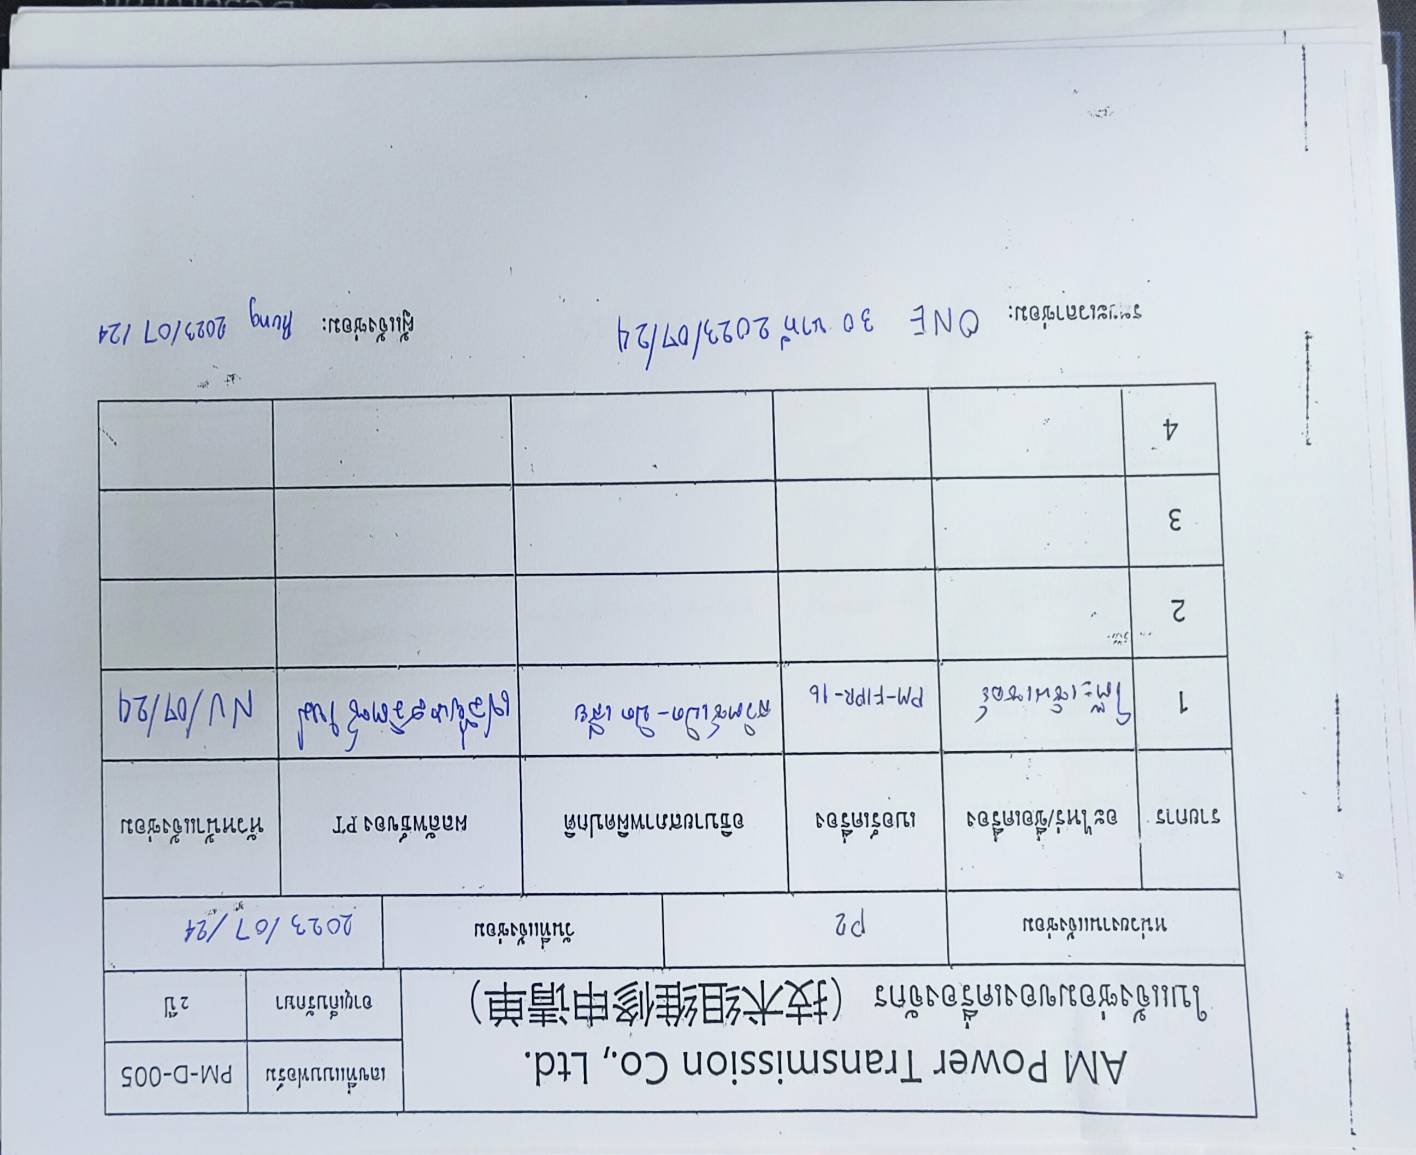 AM Power Transmission Co., Ltd.
ใบแจ้งซ่อมของเครื่องจักร (技术组维修申请单)
เลขที่แบบฟอร์ม PM-D-005
อายุเก็บรักษา 2 ปี
หน่วยงานแจ้งซ่อม P2 วันที่แจ้งซ่อม 2023/07/24
รายการ อะไหร่/ชื่อเครื่อง เบอร์เครื่อง อธิบายสภาพผิดปกติ ผลลัพธ์ของ PT หัวหน้าแจ้งซ่อม
1 โต๊ะเซ็นเซอร์ PM-FIPR-16 สวิตซ์เปิด-ปิด เสีย เปลี่ยนสวิตซ์ใหม่ NU/07/24
2
3
4
ระยะเวลาซ่อม: ONE 30 นาที 2023/07/24 ผู้แจ้งซ่อม: Rung 2023/07/24